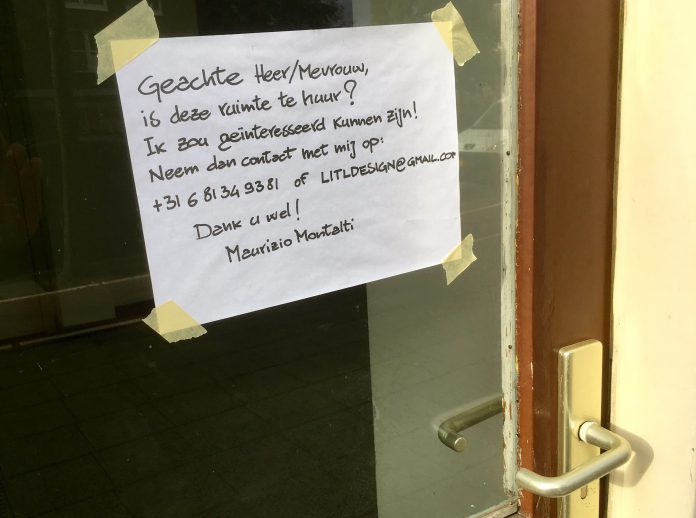 Geachte Heer/Mevrouw,
is deze ruimte te huur?
Ik zou geïnteresseerd kunnen zijn!
Neem dan contact met mij op:
+31 6 81 34 93 81 of LITLDESIGN@GMAIL.COM
Dank u wel!
Maurizio Montalti